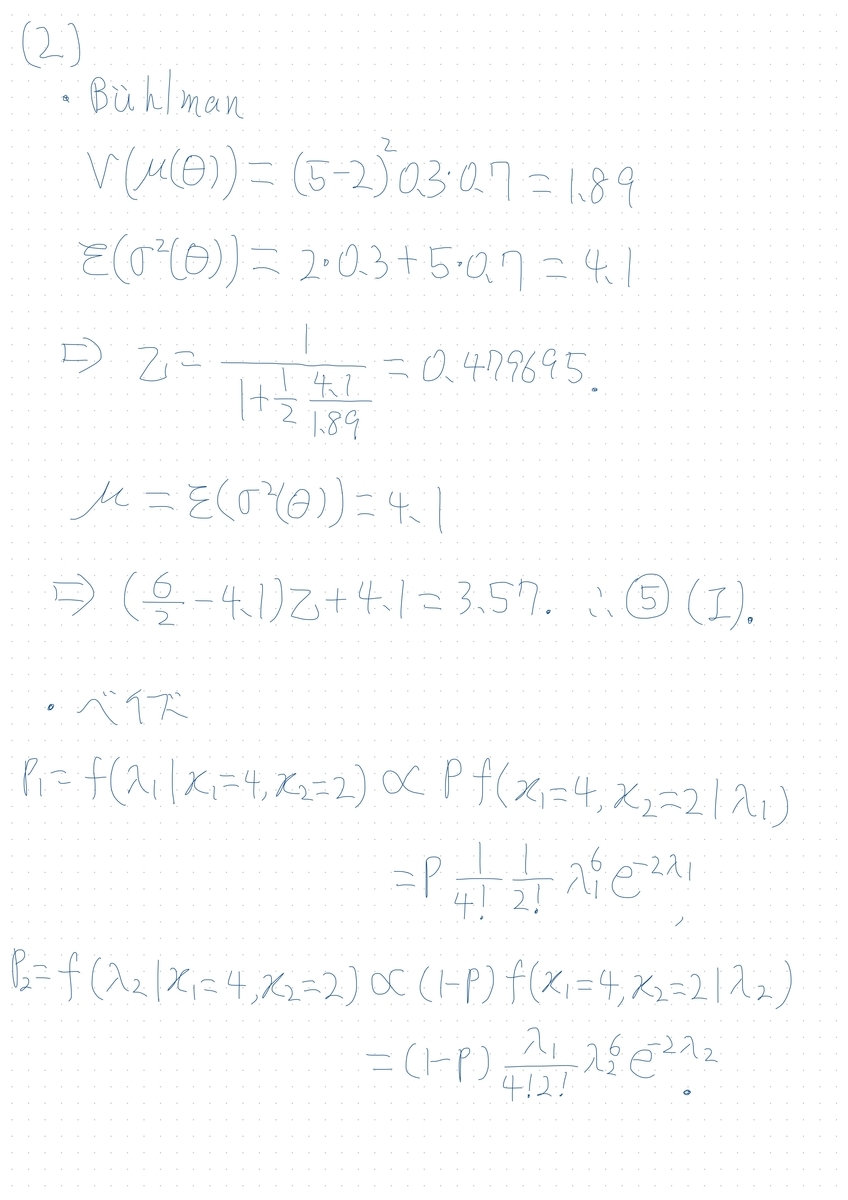 (2)
・Bühlman
V(μ(θ)) = (5-2)² 0.3・0.7 = 1.89
E(σ²(θ)) = 2・0.3 + 5・0.7 = 4.1
⇨ Z = 1 / (1 + 1/2 4.1/1.89) = 0.479695.
μ = E(σ²(θ)) = 4.1
⇨ (6/2 - 4.1)Z + 4.1 = 3.57. ∴ ⑤ (I).
・ベイズ
P₁ = f(λ₁|x₁=4, x₂=2) ∝ P f(x₁=4, x₂=2|λ₁)
= P 1/4! 1/2! λ₁⁶ e^{-2λ₁},
P₂ = f(λ₂|x₁=4, x₂=2) ∝ (1-P) f(x₁=4, x₂=2|λ₂)
= (1-P) λ₁/4!2! λ₂⁶ e^{-2λ₂}.